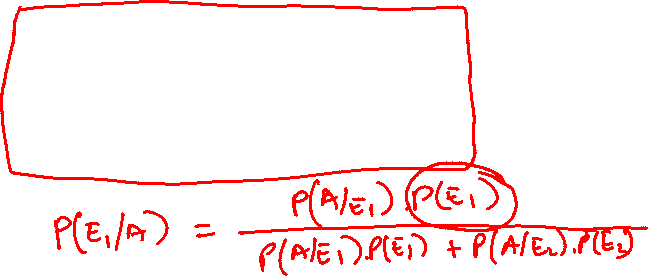 P(A/E₁) . P(E₁)
P(E₁/A) =
P(A/E₁).P(E₁) + P(A/E₂).P(E₂)